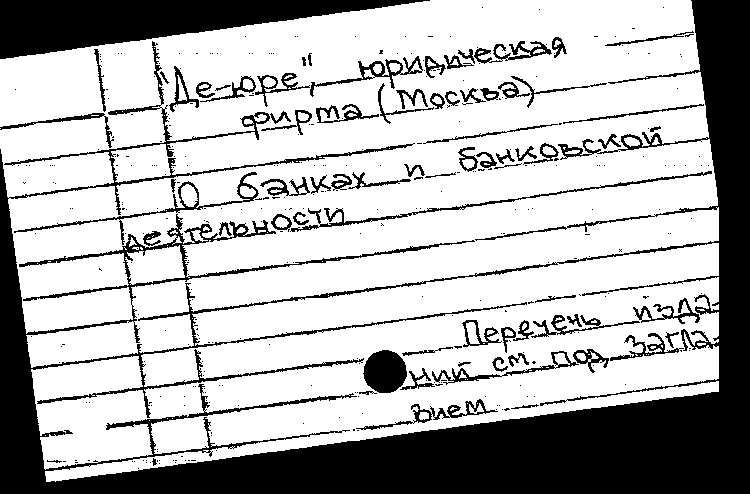 "Де-юре", юридическая
фирма (Москва)
О банках и банковской
деятельности
Перечень изда-
ний см. под загла-
вием